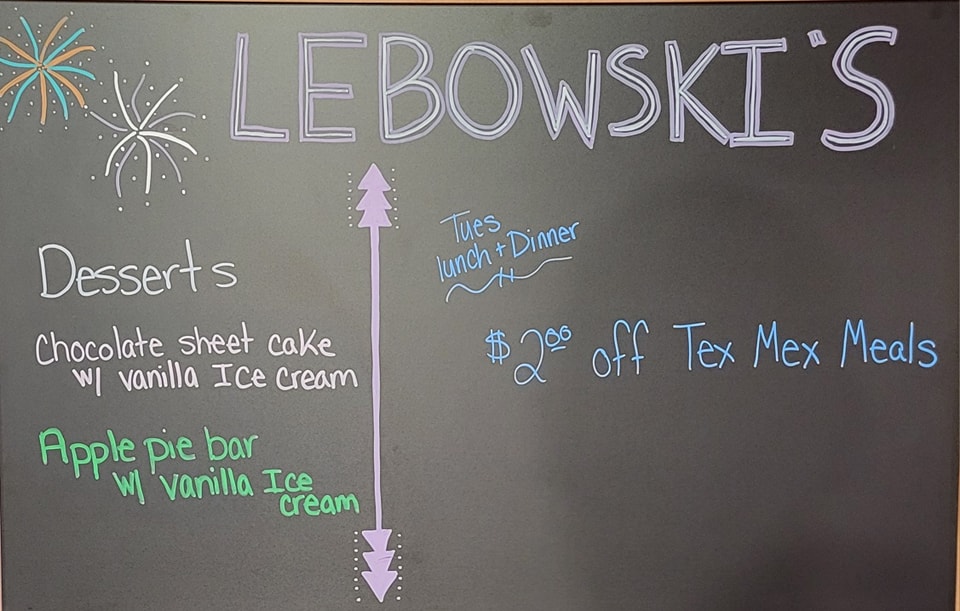 LEBOWSKI'S
Desserts
Chocolate sheet cake
w/ vanilla Ice cream
Apple pie bar
w/ vanilla Ice
cream
Tues
lunch + Dinner
$2.00 off Tex Mex Meals